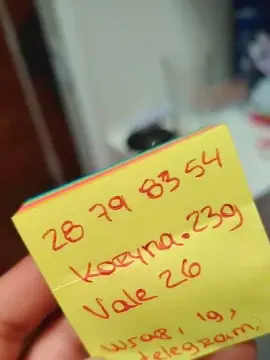 28 79 83 54
Kozyna.23g
Vale 26
wrap, ig,
telegram,